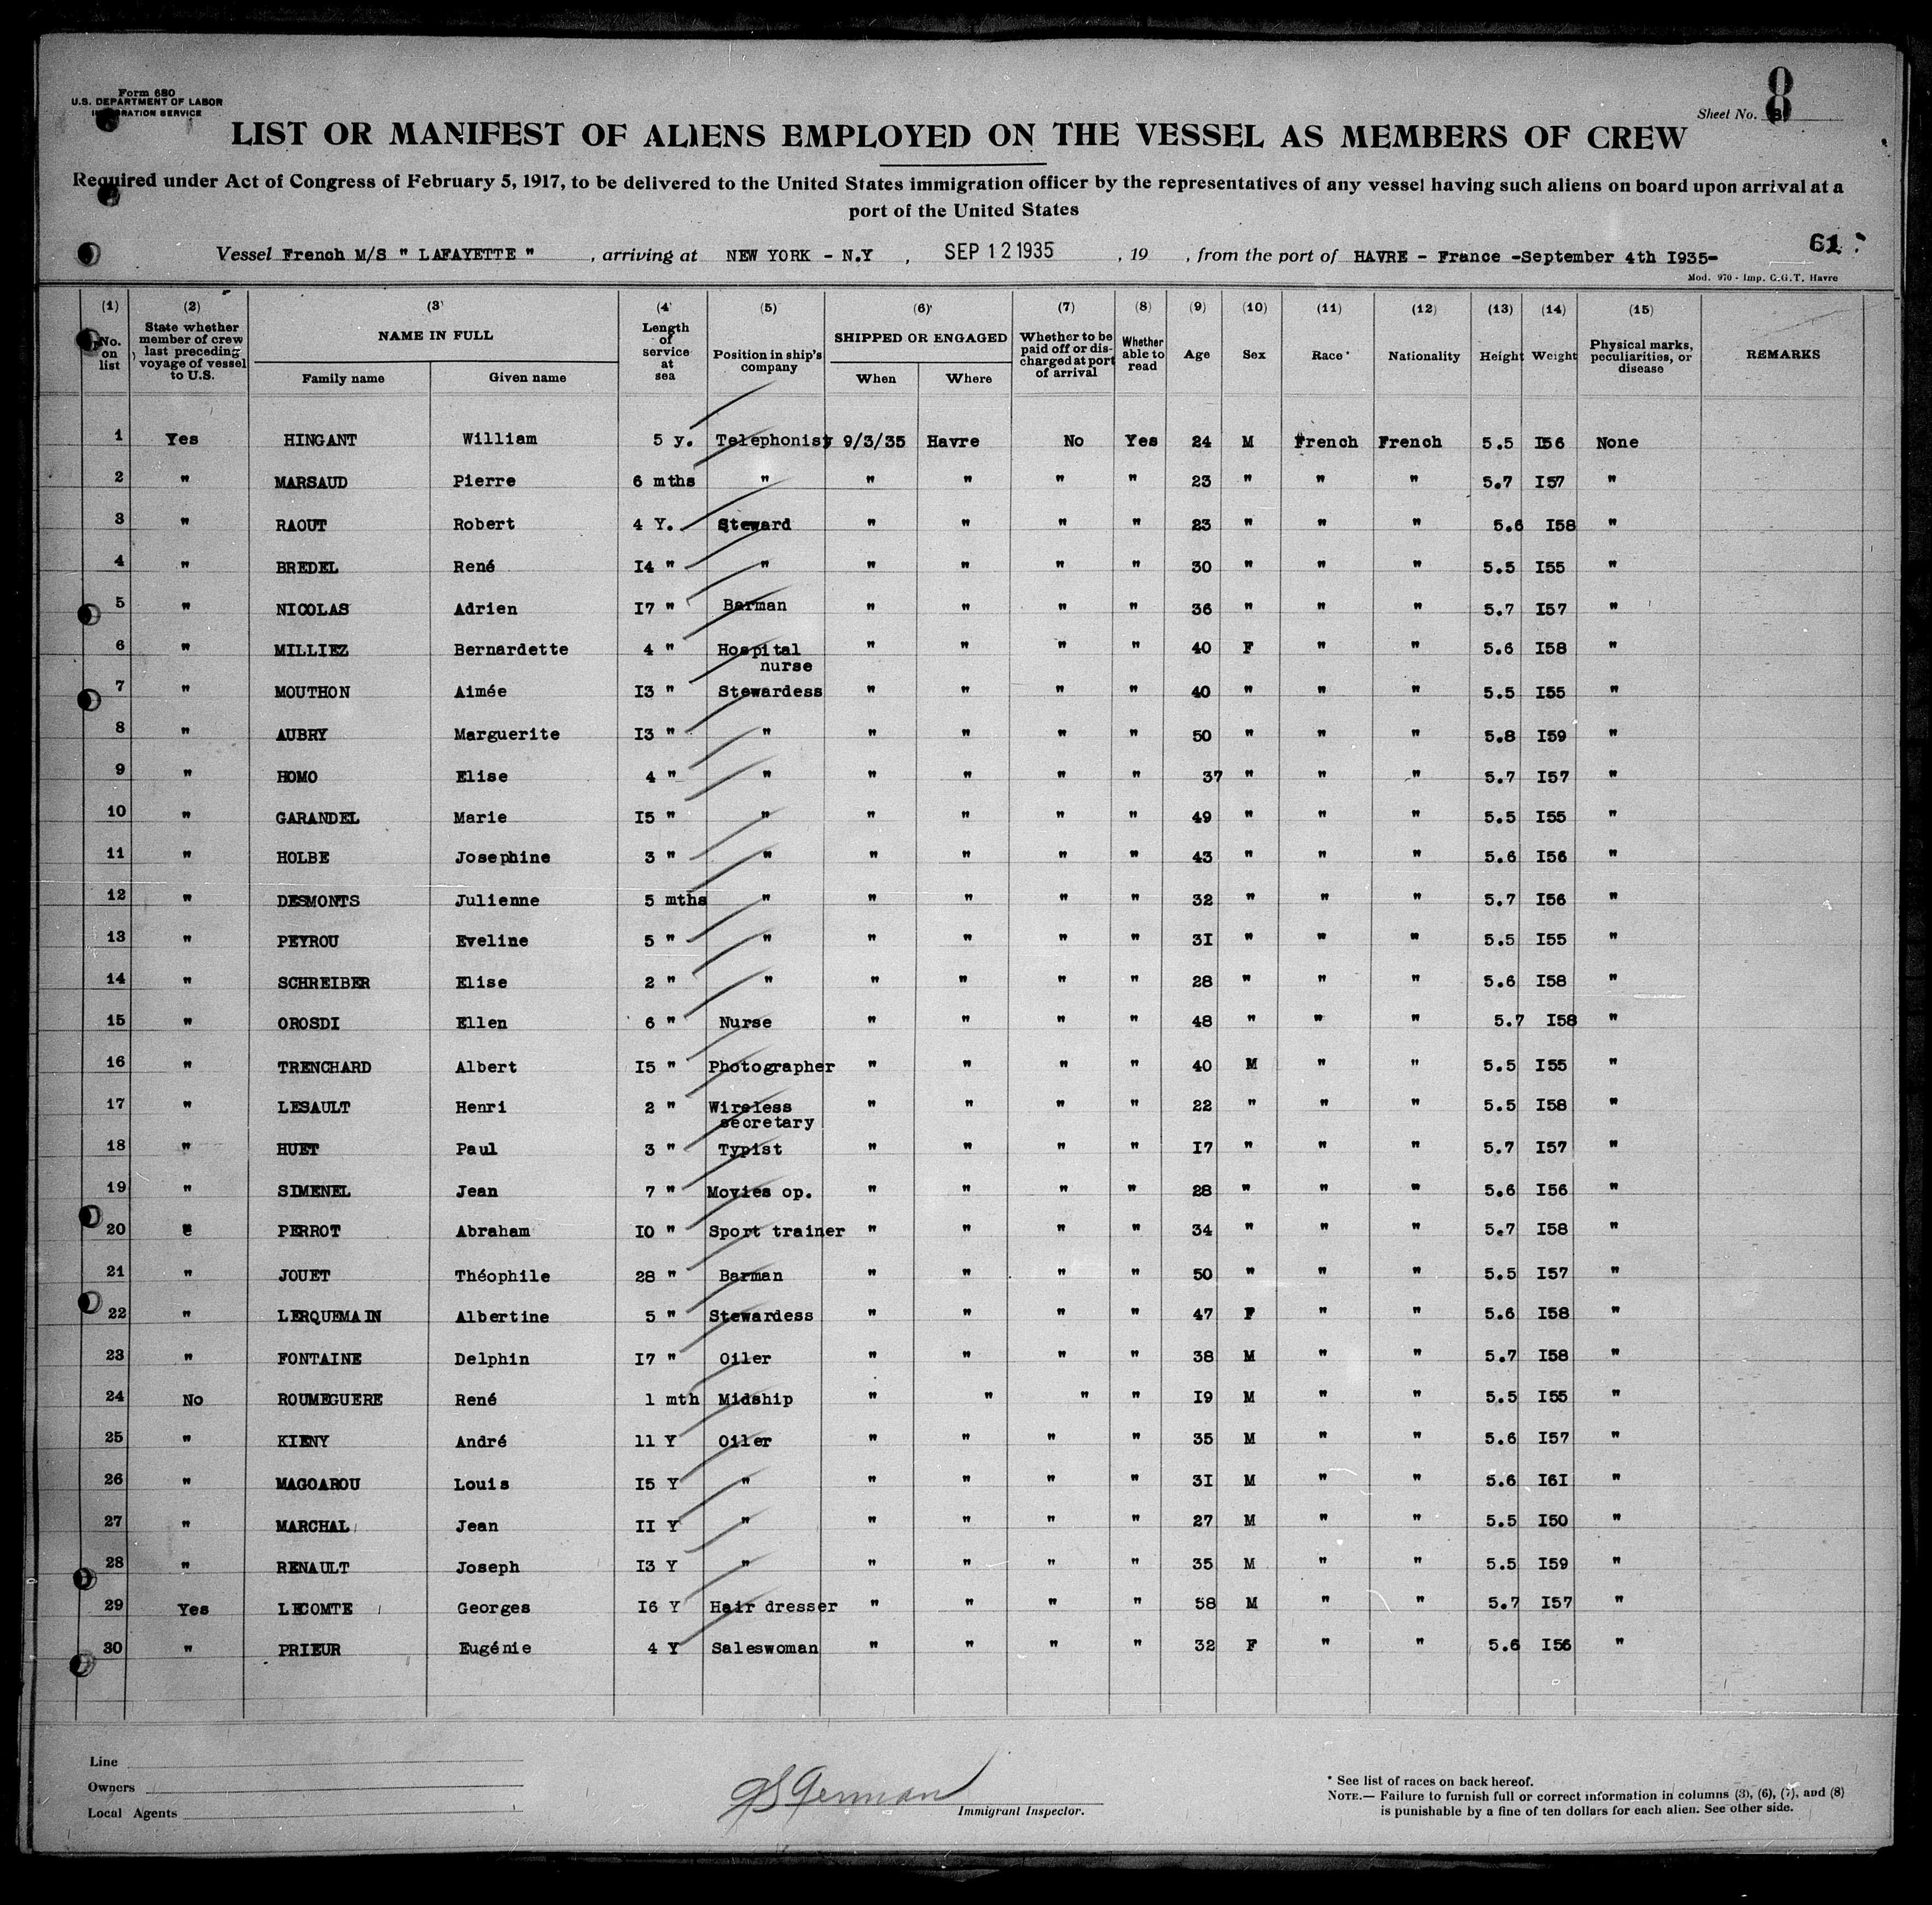 Form 680
U.S. DEPARTMENT OF LABOR
IMMIGRATION SERVICE
Sheet No. 8
LIST OR MANIFEST OF ALIENS EMPLOYED ON THE VESSEL AS MEMBERS OF CREW
Required under Act of Congress of February 5, 1917, to be delivered to the United States immigration officer by the representatives of any vessel having such aliens on board upon arrival at a
port of the United States
61
Vessel French M/S " LAFAYETTE " , arriving at NEW YORK - N.Y , SEP 12 1935 , 19 , from the port of HAVRE - France -September 4th I935-
Mod. 970 - Imp. C.G.T. Havre
(1) (2) (3) (4) (5) (6) (7) (8) (9) (10) (11) (12) (13) (14) (15)
No. on list State whether member of crew last preceding voyage of vessel to U.S. NAME IN FULL Family name Given name Length of service at sea Position in ship's company SHIPPED OR ENGAGED When Where Whether to be paid off or discharged at port of arrival Whether able to read Age Sex Race* Nationality Height Weight Physical marks, peculiarities, or disease REMARKS
1 Yes HINGANT William 5 y. Telephonist 9/3/35 Havre No Yes 24 M French French 5.5 I56 None
2 " MARSAUD Pierre 6 mths " " " " " 23 " " " 5.7 I57 "
3 " RAOUT Robert 4 Y. Steward " " " " 23 " " " 5.6 I58 "
4 " BREDEL René I4 " " " " " " 30 " " " 5.5 I55 "
5 " NICOLAS Adrien I7 " Barman " " " " 36 " " " 5.7 I57 "
6 " MILLIEZ Bernardette 4 " Hospital nurse " " " " 40 F " " 5.6 I58 "
7 " MOUTHON Aimée I3 " Stewardess " " " " 40 " " " 5.5 I55 "
8 " AUBRY Marguerite I3 " " " " " " 50 " " " 5.8 I59 "
9 " HOMO Elise 4 " " " " " " 37 " " " 5.7 I57 "
10 " GARANDEL Marie I5 " " " " " " 49 " " " 5.5 I55 "
11 " HOLBE Josephine 3 " " " " " " 43 " " " 5.6 I56 "
12 " DESMONTS Julienne 5 mths " " " " " 32 " " " 5.7 I56 "
13 " PEYROU Eveline 5 " " " " " " 3I " " " 5.5 I55 "
14 " SCHREIBER Elise 2 " " " " " " 28 " " " 5.6 I58 "
15 " OROSDI Ellen 6 " Nurse " " " " 48 " " " 5.7 I58 "
16 " TRENCHARD Albert I5 " Photographer " " " " 40 M " " 5.5 I55 "
17 " LESAULT Henri 2 " Wireless secretary " " " " 22 " " " 5.5 I58 "
18 " HUET Paul 3 " Typist " " " " I7 " " " 5.7 I57 "
19 " SIMENEL Jean 7 " Movies op. " " " " 28 " " " 5.6 I56 "
20 PERROT Abraham I0 " Sport trainer " " " " 34 " " " 5.7 I58 "
21 " JOUET Théophile 28 " Barman " " " " 50 " " " 5.5 I57 "
22 " LERQUEMAIN Albertine 5 " Stewardess " " " " 47 F " " 5.6 I58 "
23 " FONTAINE Delphin I7 " Oiler " " " " 38 M " " 5.7 I58 "
24 No ROUMEGUERE René 1 mth Midship " " " " I9 M " " 5.5 I55 "
25 " KIENY André 11 Y Oiler " " " " 35 M " " 5.6 I57 "
26 " MAGOAROU Louis I5 Y " " " " " 3I M " " 5.6 I6I "
27 " MARCHAL Jean II Y " " " " " 27 M " " 5.5 I50 "
28 " RENAULT Joseph I3 Y " " " " " 35 M " " 5.5 I59 "
29 Yes LECOMTE Georges I6 Y Hair dresser " " " " 58 M " " 5.7 I57 "
30 " PRIEUR Eugénie 4 Y Saleswoman " " " " 32 F " " 5.6 I56 "
Line
Owners
Local Agents
GSGerman
Immigrant Inspector.
* See list of races on back hereof.
NOTE.— Failure to furnish full or correct information in columns (3), (6), (7), and (8)
is punishable by a fine of ten dollars for each alien. See other side.